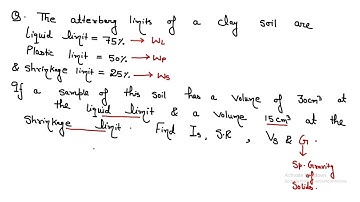 Q. The atterberg limits of a clay soil are
Liquid limit = 75% → WL
Plastic limit = 50% → WP
& shrinkage limit = 25% → WS
If a sample of this soil has a volume of 30cm³ at
the liquid limit & a volume 15cm³ at the
shrinkage limit. Find Is, S.R, Vs & G.
Sp. Gravity
of
Solids.
Activate Windows